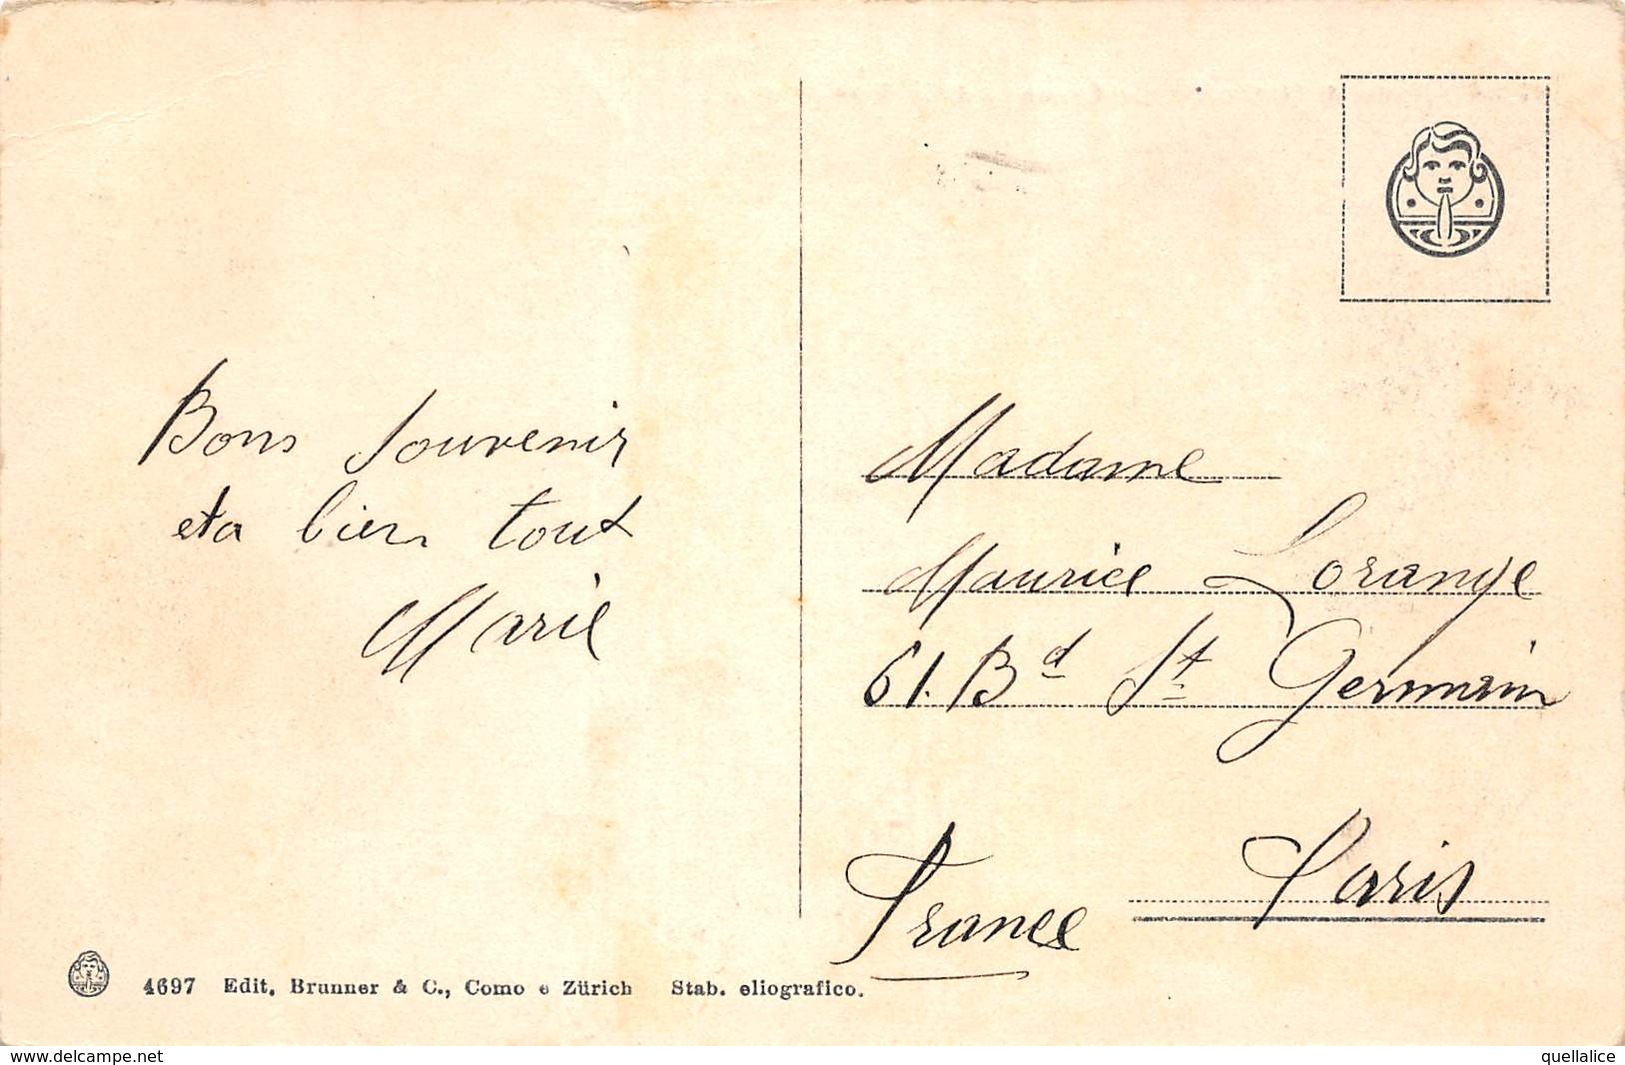 Bons souvenir
et a bien tout
Marie
Madame
Maurice Lorange
61. Bd St Germain
Paris
France
4697 Edit. Brunner & C., Como e Zürich Stab. eliografico.
www.delcampe.net
quellalice